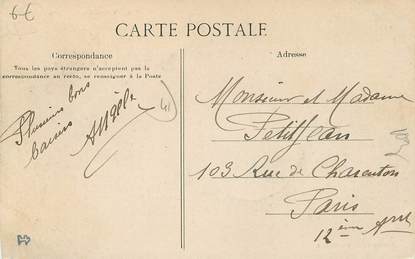 6€
CARTE POSTALE
Correspondance
Tous les pays étrangers n'acceptent pas la
correspondance au recto, se renseigner à la Poste
Plusieurs bons
baisers
Angèle
41
Adresse
Monsieur et Madame
PetitJean
103 Rue de Charenton
Paris
12ème Arrt